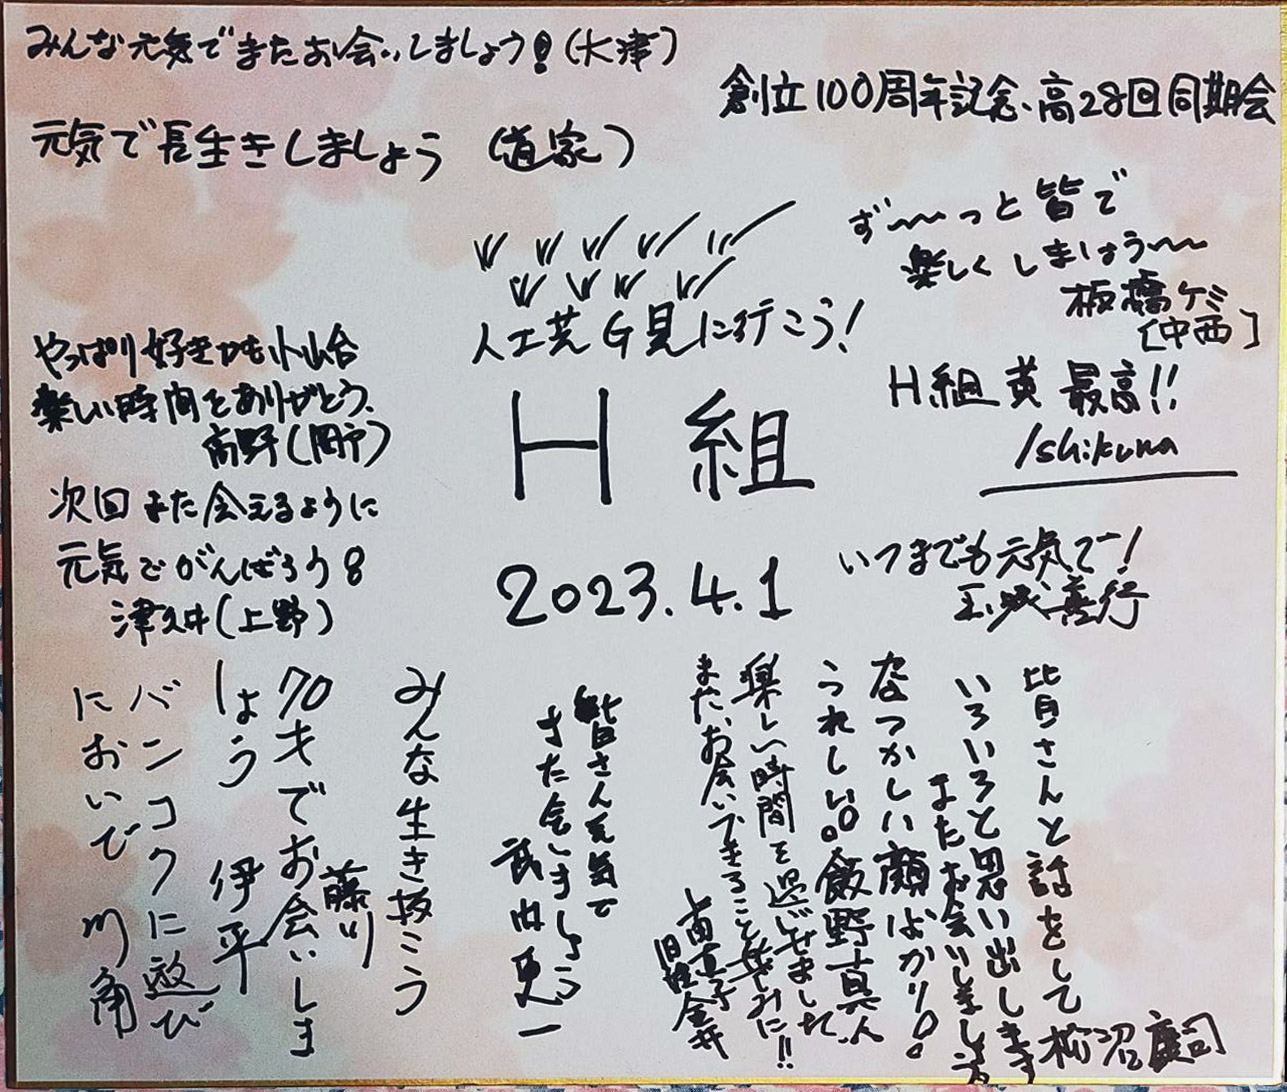 みんな元気でまたお会いしましょう!(大津)
創立100周年記念、高28回同期会
元気で長生きしましょう (道家)
ず〜〜っと皆で
楽しくしましょう〜〜
板橋ケミ
[中西]
人工芝G見に行こう!
やっぱり好きかも小山台
楽しい時間をありがとう、
高野(岡戸)
H組
H.組 英 最高!!
Ishikura
次回また会えるように
元気でがんばろう8
津久井(上野)
2023.4.1
いつまでも元気で!
玉城善行
皆さんと話をして
いろいろと思い出します
またお会いしましょう
松沼 康司
なつかしい顔ばかり!
うれしい。飯野真人
楽しい時間を過ごせました、
また、お会いできること楽しみに!!
旧姓 金井
皆さん元気で
また会いましょう
武内 晃一
みんな生き抜こう
藤川
70才でお会いしま
しょう 伊平
バンコクに遊び
においで 川角